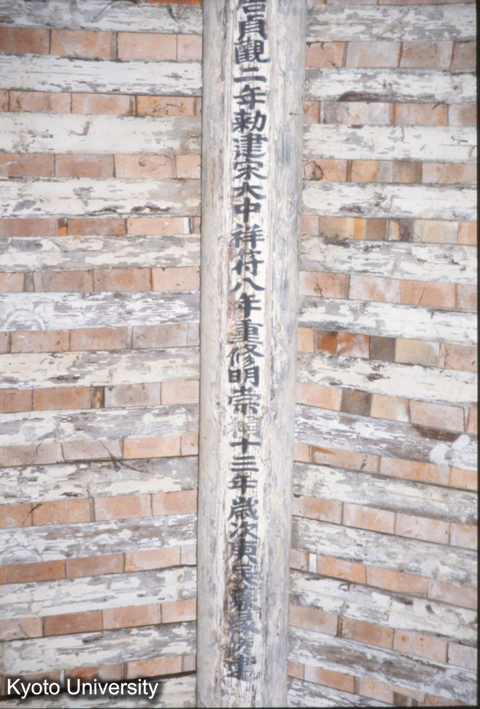 貞觀二年勅建宋大中祥符八年重修明崇禎十三年歲次庚辰募緣修建
Kyoto University